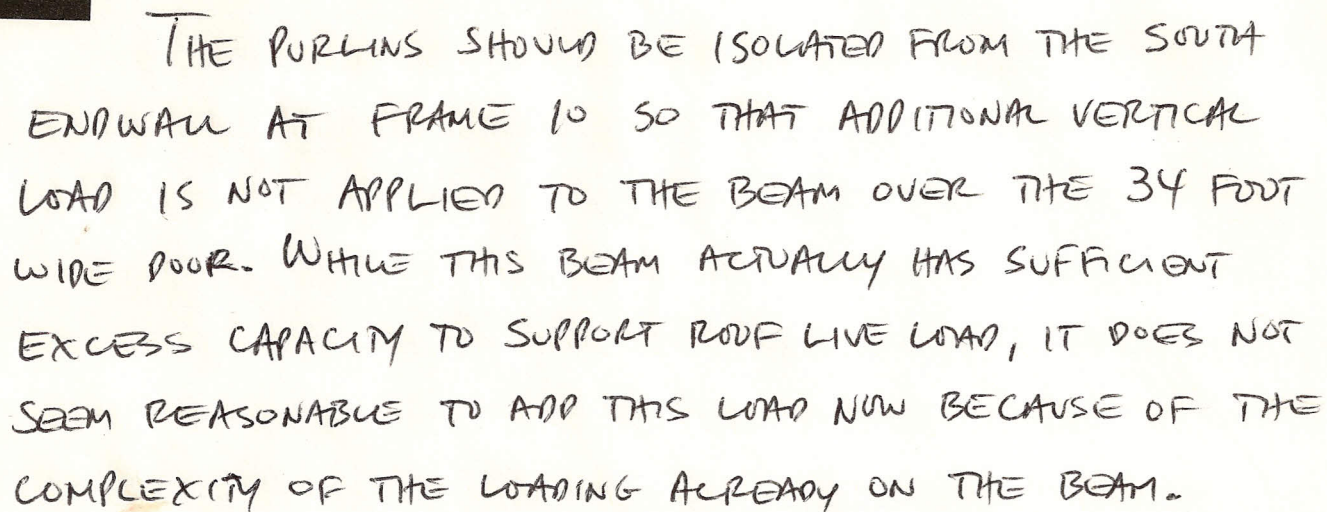 THE PURLINS SHOULD BE ISOLATED FROM THE SOUTH
ENDWALL AT FRAME 10 SO THAT ADDITIONAL VERTICAL
LOAD IS NOT APPLIED TO THE BEAM OVER THE 34 FOOT
WIDE DOOR. WHILE THIS BEAM ACTUALLY HAS SUFFICIENT
EXCESS CAPACITY TO SUPPORT ROOF LIVE LOAD, IT DOES NOT
SEEM REASONABLE TO ADD THIS LOAD NOW BECAUSE OF THE
COMPLEXITY OF THE LOADING ALREADY ON THE BEAM.